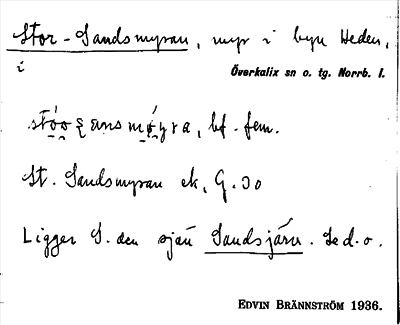 Stor-Sandsmyran, myr i byn Heden,
i
Överkalix sn o. tg. Norrb. l.
bf. fem.
St. Sandsmyran ek, G.
Ligger S. om sjön Sandsjärv. Se d.o.
EDVIN BRÄNNSTRÖM 1936.